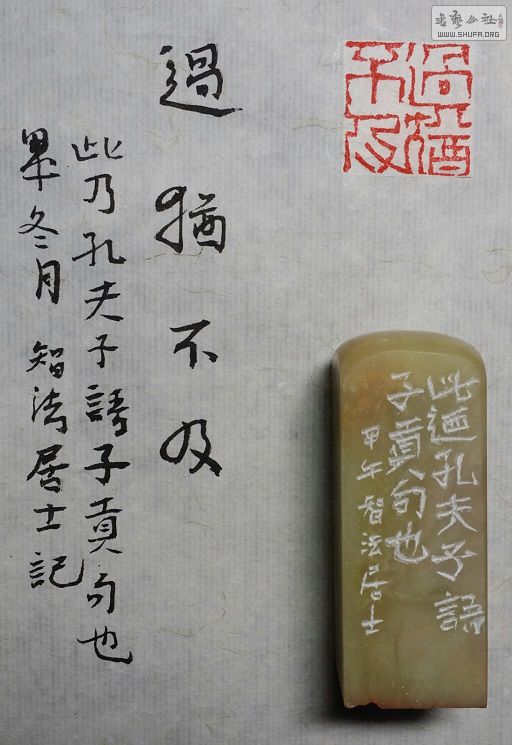 書藝公社
WWW.SHUFA.ORG
過猶不及
過猶不及
此乃孔夫子語子貢句也
甲午冬月 智法居士記
此迺孔夫子語
子貢句也
甲午智法居士